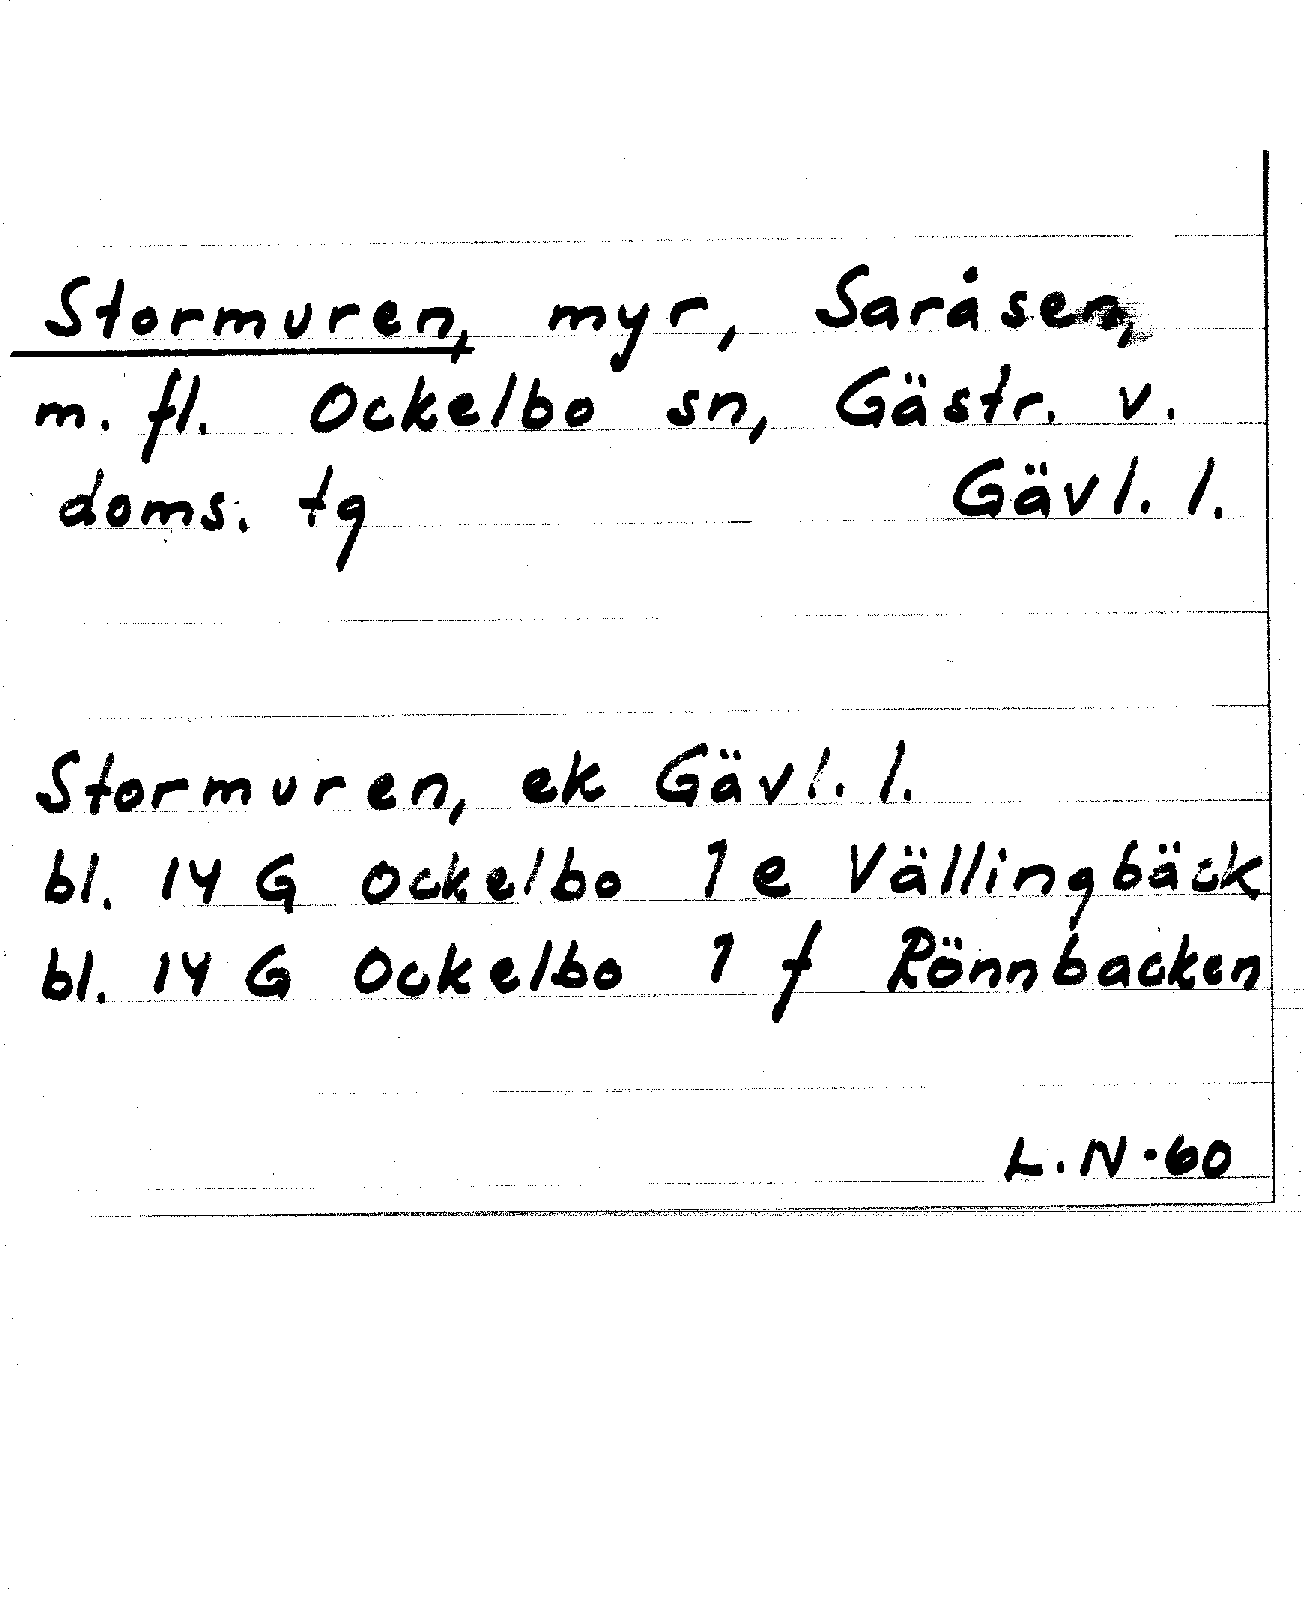 Stormuren, myr, Saråsen,
m. fl. Ockelbo sn, Gästr. v.
doms. tg Gävl. l.
Stormuren, ek Gävl. l.
bl. 14 G Ockelbo 1 e Vällingbäck
bl. 14 G Ockelbo 1 f Rönnbacken
L.N.60